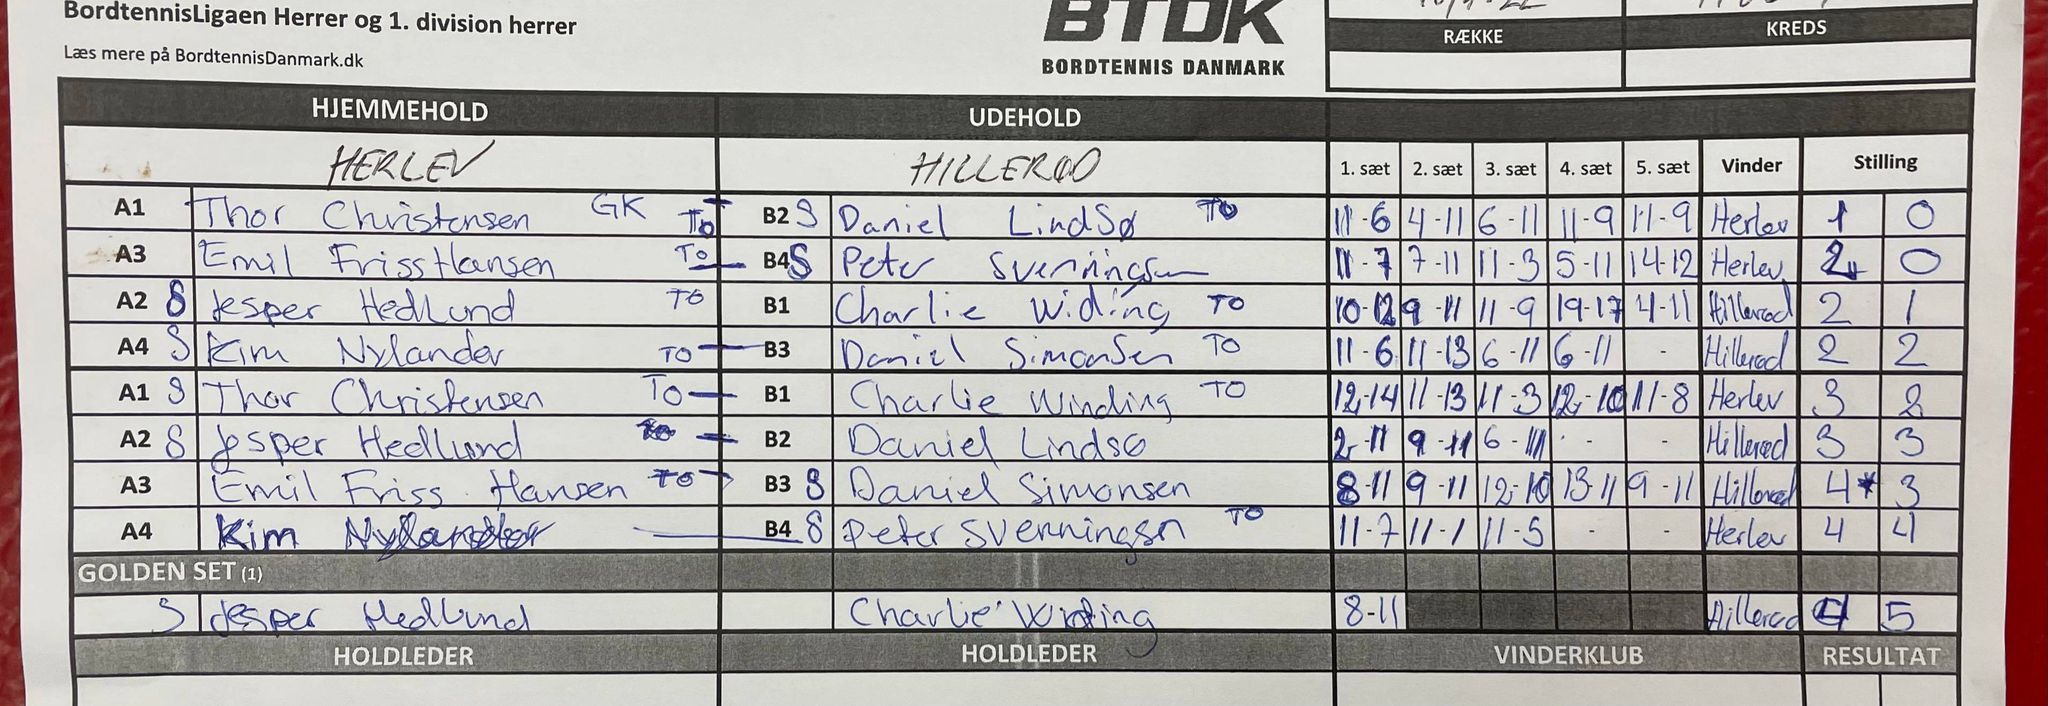 BordtennisLigaen Herrer og 1. division herrer
Læs mere på BordtennisDanmark.dk
BTDK
BORDTENNIS DANMARK
RÆKKE KREDS
HJEMMEHOLD UDEHOLD
HERLEV HILLERØD 1. sæt 2. sæt 3. sæt 4. sæt 5. sæt Vinder Stilling
A1 Thor Christensen GK TO B2 S Daniel LindSø TO 11-6 4-11 6-11 11-9 11-9 Herlev 1 0
A3 Emil FrissHansen TO B4 S Peter Svenningsen 11-7 7-11 11-3 5-11 14-12 Herlev 2 0
A2 S Jesper Hedlund TO B1 Charlie Widing TO 10-12 9-11 11-9 19-17 4-11 Hillerød 2 1
A4 S Kim Nylander TO B3 Daniel Simonsen TO 11-6 11-13 6-11 6-11 - Hillerød 2 2
A1 S Thor Christensen TO B1 Charlie Winding TO 12-14 11-13 11-3 12-10 11-8 Herlev 3 2
A2 S Jesper Hedlund TO B2 Daniel Lindsø 2-11 9-11 6-11 - - Hillerød 3 3
A3 Emil Friss Hansen TO B3 S Daniel Simonsen 8-11 9-11 12-10 13-11 9-11 Hillerød 4* 3
A4 Kim Nylander B4 S Peter Svenningsn TO 11-7 11-1 11-5 - - Herlev 4 4
GOLDEN SET (1)
S Jesper Hedlund Charlie Winding 8-11 Hillerød 4 5
HOLDLEDER HOLDLEDER VINDERKLUB RESULTAT